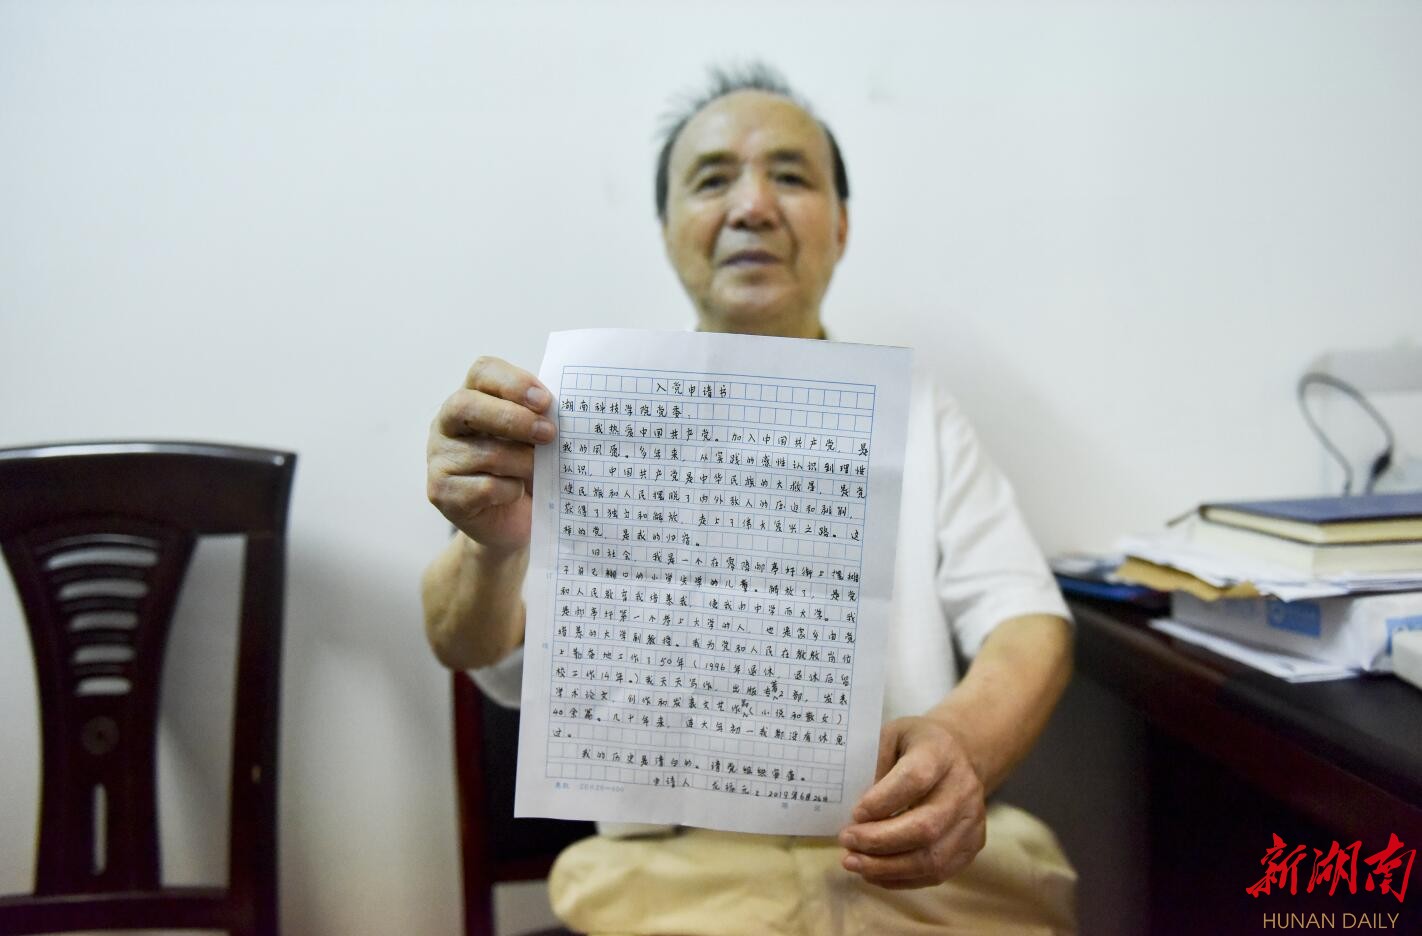 入党申请书
湖南科技学院党委：
我热爱中国共产党。加入中国共产党，是
我的夙愿。多年来，从实践的感性认识到理性
认识，中国共产党是中华民族的大救星，是党
使民族和人民摆脱了内外敌人的压迫和剥削，
获得了独立和解放，走上了伟大复兴之路。这
样的党，是我的归宿。
旧社会，我是一个在零陵邮亭圩街上摆摊
子自己糊口的小学失学的儿童。解放了，是党
和人民教育我培养我，使我由中学而大学。我
是邮亭圩第一个考上大学的人，也是家乡由党
培养的大学副教授。我为党和人民在教教岗位
上勤奋地工作了50年（1996年退休，退休后留
校工作14年。）我天天写作，出版专著2部，发表
学术论文、创作和发表文艺作品（小说和散文）
40余篇。几十年来，连大年初一我都没有休息
过。
我的历史是清白的。请党组织审查。
申请人 2019年6月26日
20×20=400
新湖南
HUNAN DAILY